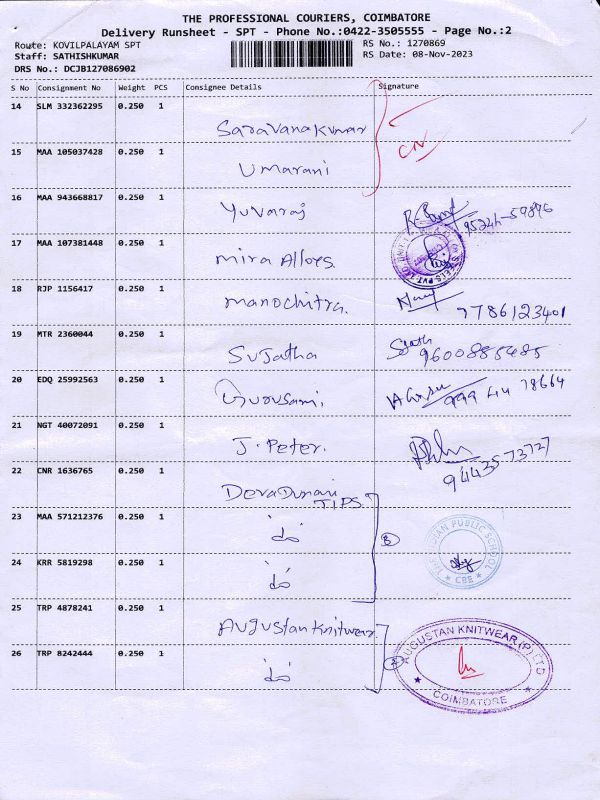 THE PROFESSIONAL COURIERS, COIMBATORE
Delivery Runsheet - SPT - Phone No.:0422-3505555 - Page No.:2
Route: KOVILPALAYAM SPT RS No.: 1270869
Staff: SATHISHKUMAR RS Date: 08-Nov-2023
DRS No.: DCJB127086902
S No Consignment No Weight PCS Consignee Details Signature
14 SLM 332362295 0.250 1 Saravanakumar
CN
15 MAA 105037428 0.250 1 Umarani
16 MAA 943668817 0.250 1 Yuvaraj 95244-59896
17 MAA 107381448 0.250 1 Mira Alloes.
18 RJP 1156417 0.250 1 Manochitra. 7786123401
19 MTR 2360044 0.250 1 Sujatha 9600885485
20 EDQ 25992563 0.250 1 Gurusami, 999 44 78664
21 NGT 40072091 0.250 1 J. Peter. 94435-73727
22 CNR 1636765 0.250 1
TIPS
23 MAA 571212376 0.250 1 do
24 KRR 5819298 0.250 1 do
INDIAN PUBLIC SCHOOL
CBE
25 TRP 4878241 0.250 1 Augustan Knitwear.
26 TRP 8242444 0.250 1 do
AUGUSTAN KNITWEAR (P) LTD
COIMBATORE